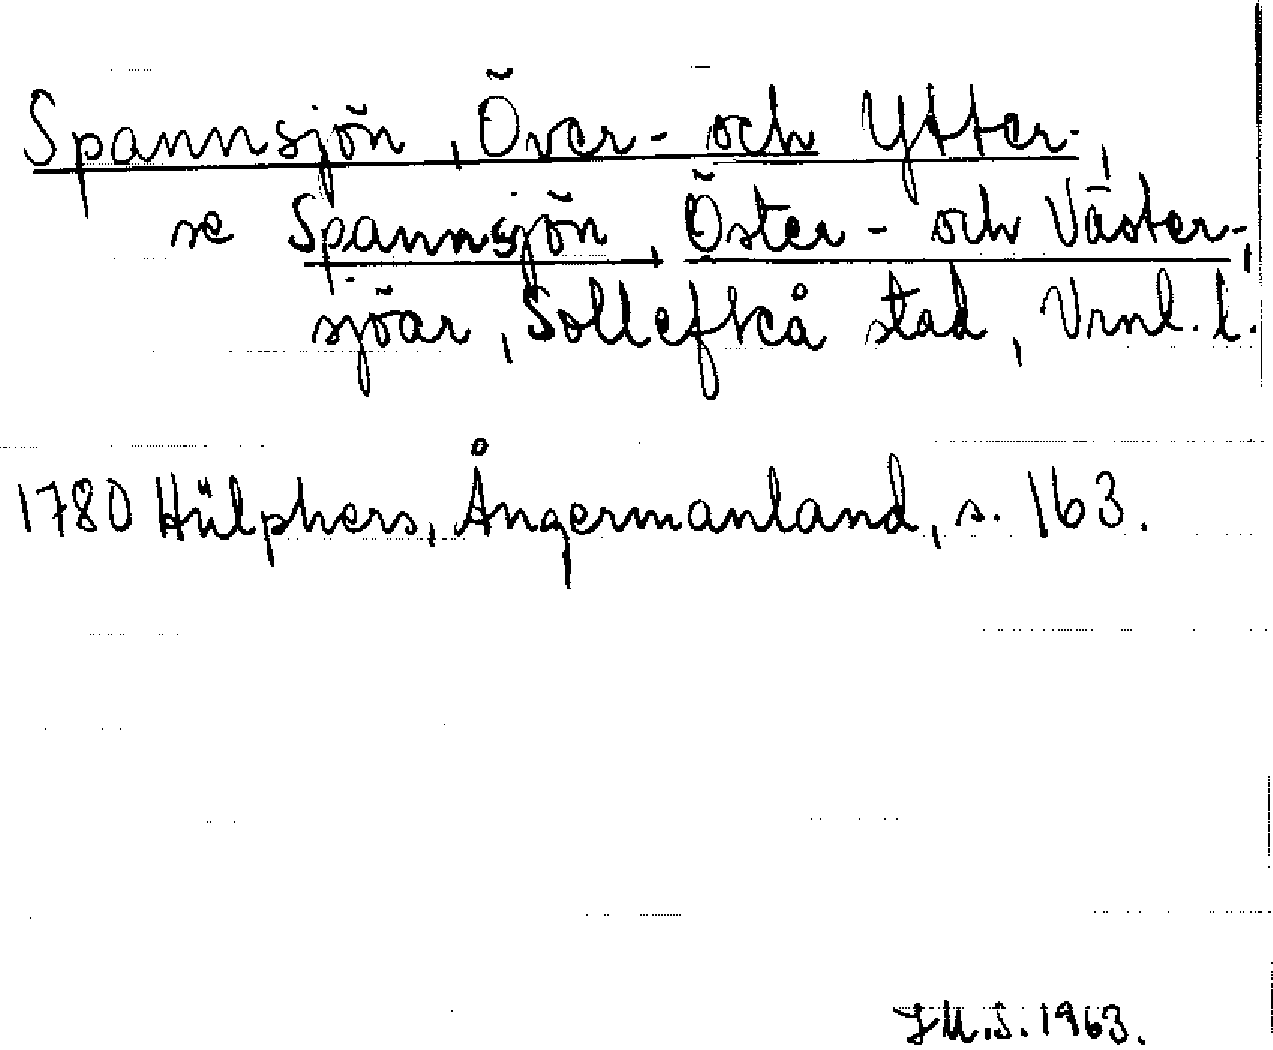 Spannsjön, Över- och Ytter-,
se Spannsjön, Öster- och Väster-,
sjöar, Sollefteå stad, Vrnl. l.
1780 Hülphers, Ångermanland, s. 163.
1963.